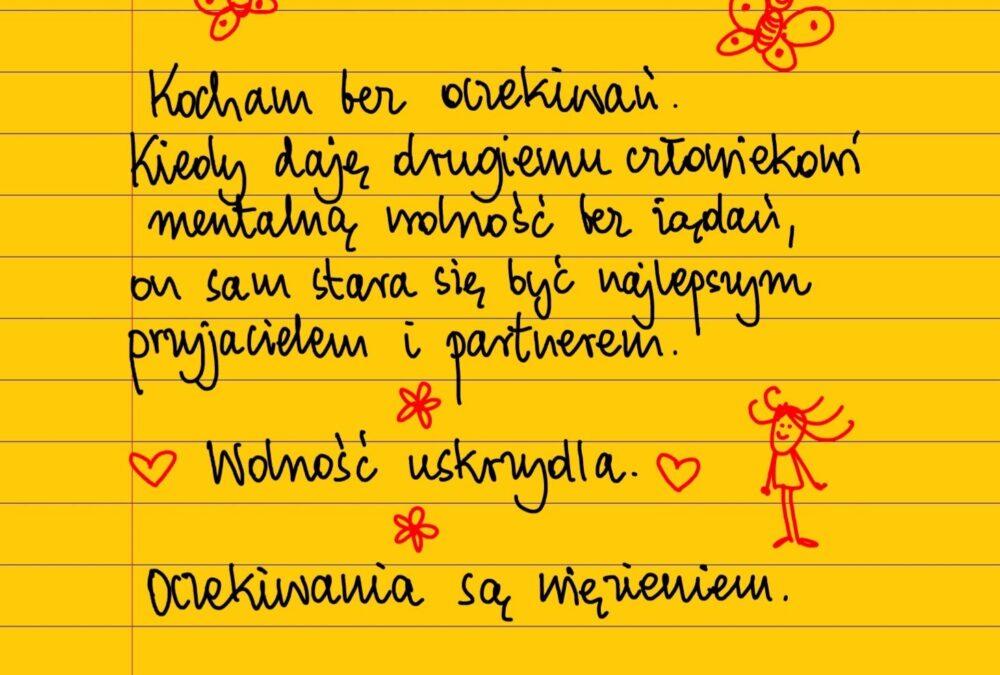 Kocham bez oczekiwań.
Kiedy daję drugiemu człowiekowi
mentalną wolność bez żądań,
on sam stara się być najlepszym
przyjacielem i partnerem.
Wolność uskrzydla.
Oczekiwania są więzieniem.